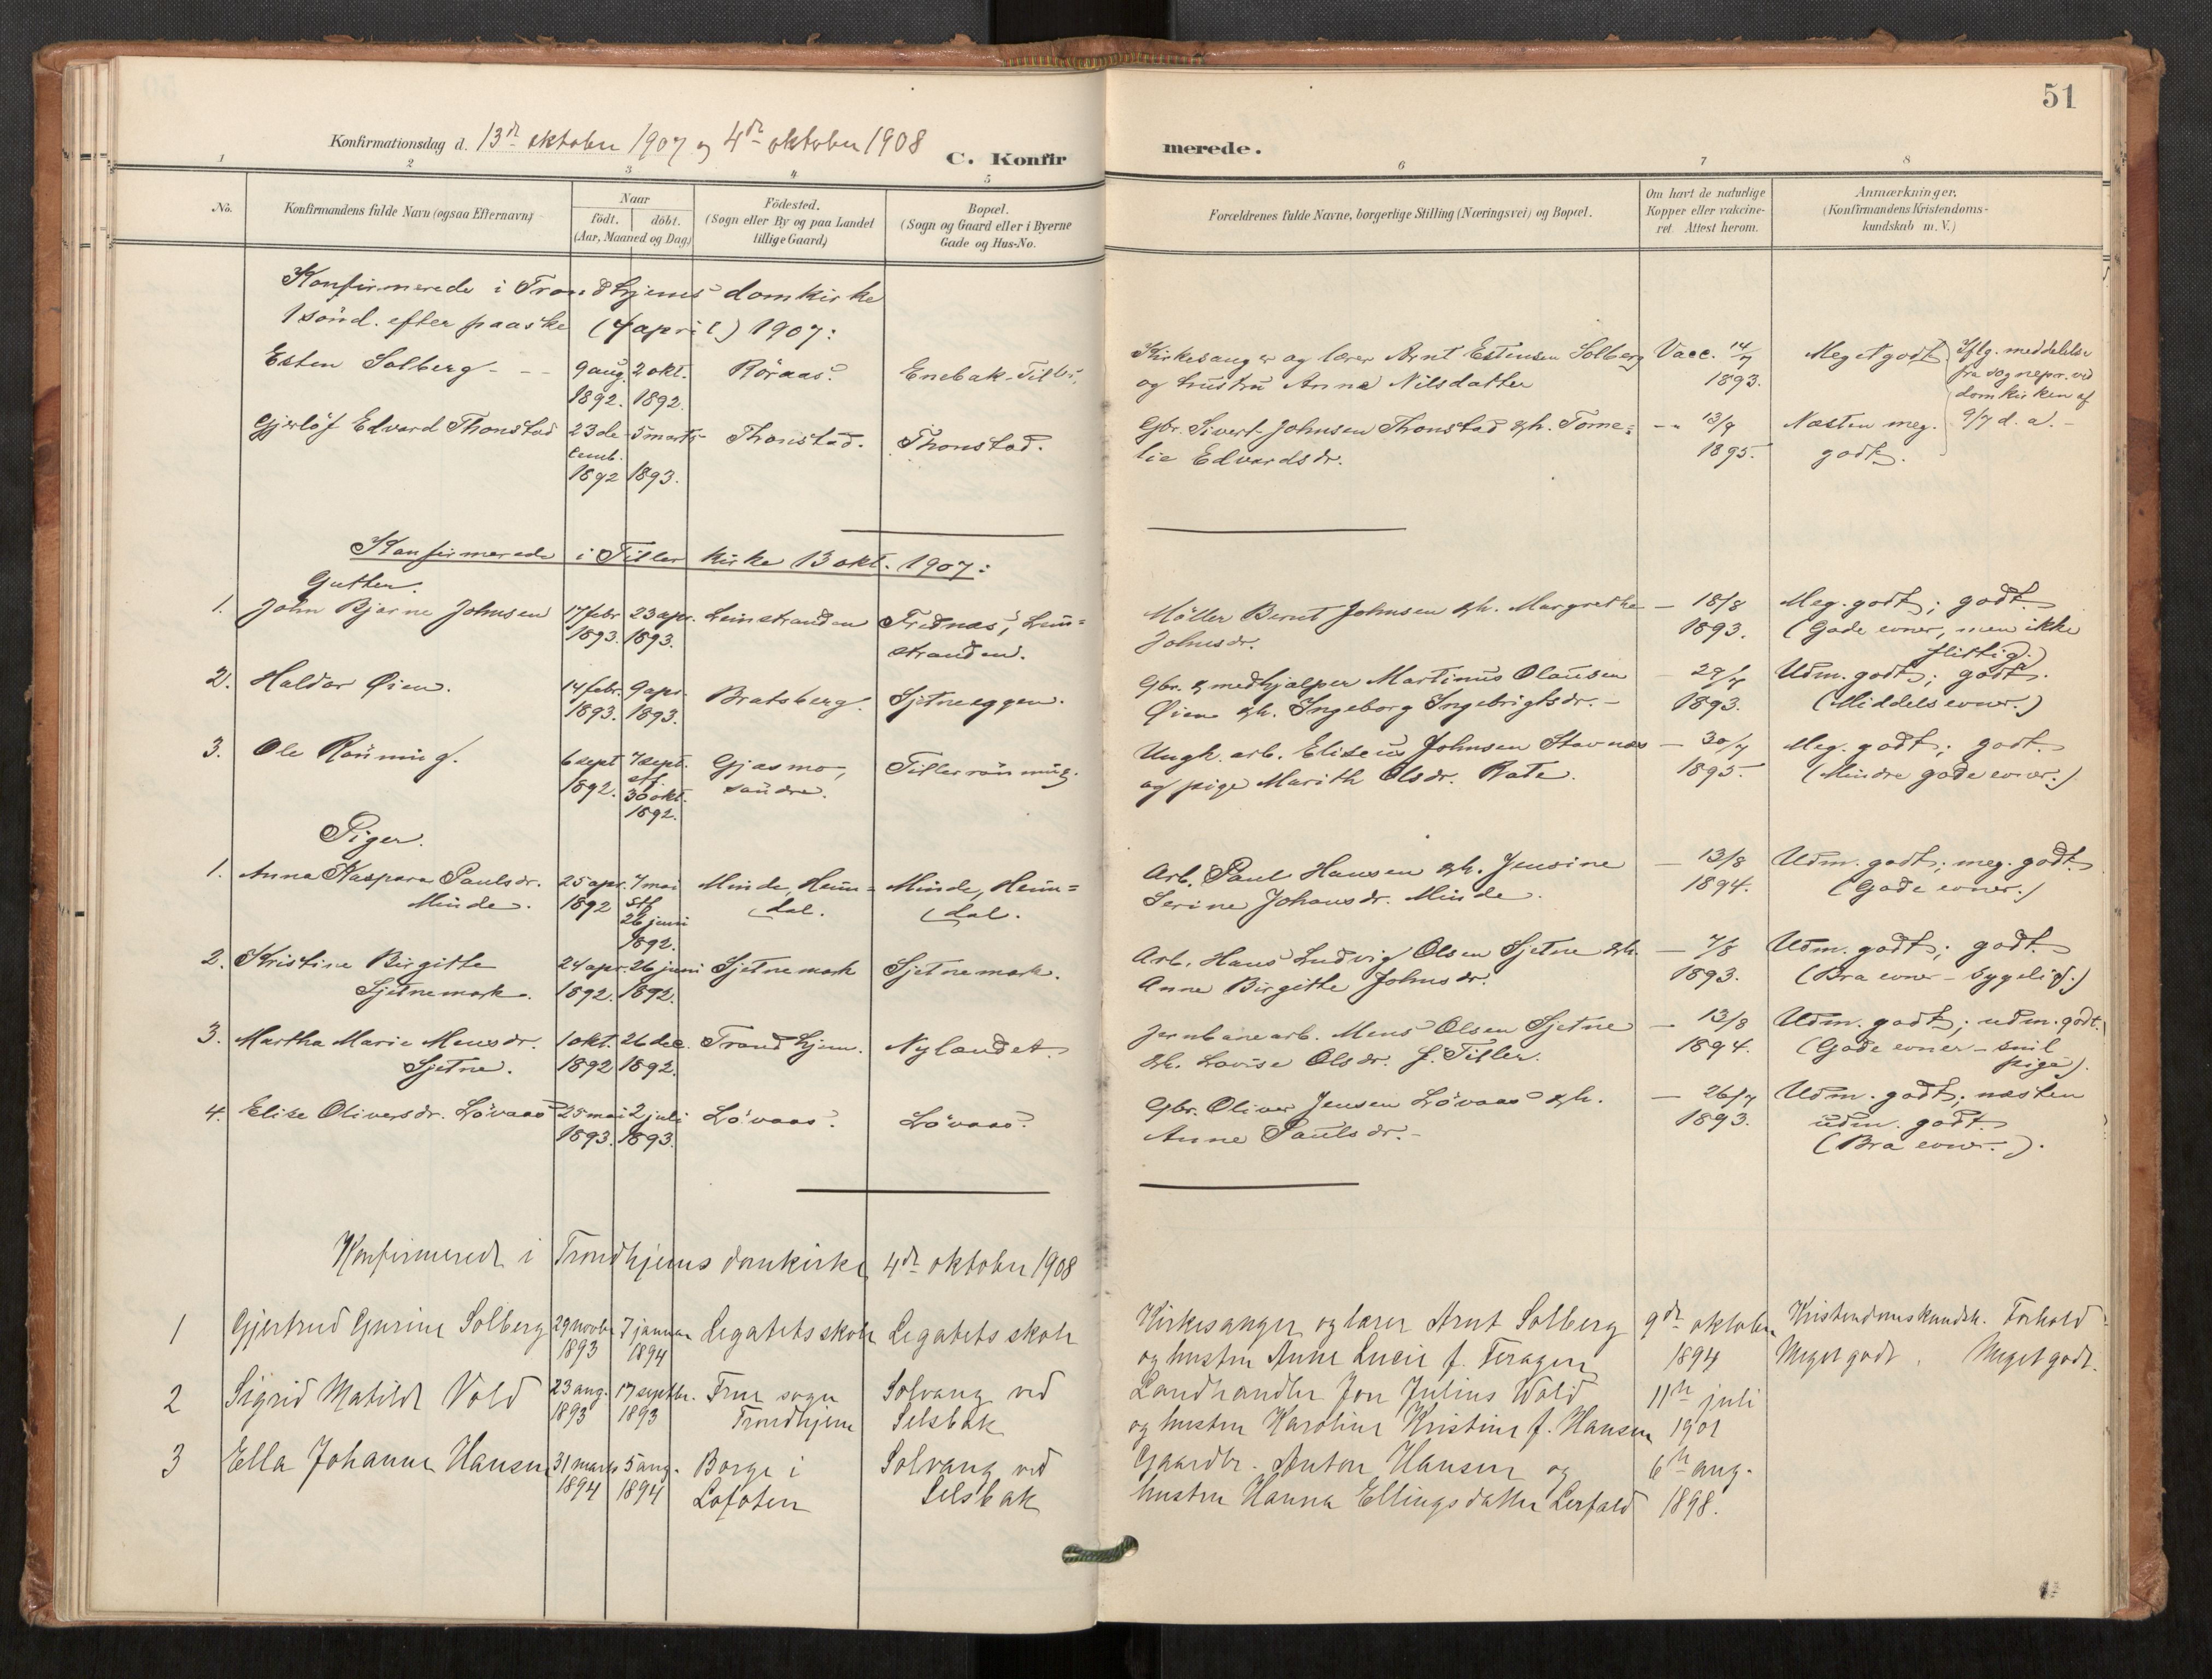 51
Konfirmationsdag d. 13de oktober 1907 og 4de oktober 1908
C. Konfirmerede.
1 2 3 4 5 6 7 8
No.
Konfirmandens fulde Navn (ogsaa Efternavn)
Naar
födt. döbt.
(Aar, Maaned og Dag)
Födested.
(Sogn eller By og paa Landet
tillige Gaard)
Bopæl.
(Sogn og Gaard eller i Byerne
Gade og Hus-No.
Forældrenes fulde Navne, borgerlige Stilling (Næringsvei) og Bopæl.
Om havt de naturlige
Kopper eller vakcine-
ret. Attest herom.
Anmærkninger.
(Konfirmandens Kristendoms-
kundskab m. V.)
Konfirmerede i Trondhjems domkirke
1 sönd. efter paaske (7 april) 1907:
Esten Solberg - - 9 aug. 2 okt. Röraas. Enebak-Tiller. Kirkesanger og lærer Arnt Estensen Solberg Vacc. 14/7 Meget godt. Iflg. meddelelse
1892. 1892. og hustru Anna Nilsdatter 1893. fra sognepr. ved
domkirken af
Gjerløf Edvard Thonstad 23 de- 5 marts Thonstad. Thonstad. Gbr. Sivert Johnsen Thonstad & h. Tome= - " 13/9 Næsten meg. 9/7 d. a. -
cemb.
1892 1893. lie Edvardsdr. 1895. godt.
Konfirmerede i Tiller kirke 13 okt. 1907:
Gutter.
1. John Bjarne Johnsen 17 febr 23 apr. Leinstranden Trednæs, Lein= Möller Bernt Johnsen & h. Margrethe - 18/8 Meg. godt; godt.
1893. 1893. stranden. Johnsdr. 1893. (Gode evner, men ikke
flittig.)
2. Haldor Øien. 14 febr. 9 apr. Bratsberg. Sjetneeggen. Gbr. & medhjælper Martinus Olausen - 29/7 Udm. godt; godt.
1893. 1893. Øien & h. Ingeborg Ingebrigtsdr. - 1893. (Middels evner.)
3. Ole Rönning. 6 sept 7 sept. Gjasmo, Tillerrönning. Ungk. arb. Eliseus Johnsen Stavnæs - 30/7 Meg. godt; godt.
1892. stf. 30 okt. 1892. söndre. og pige Marith Olsdr. Rate. 1895. (Mindre gode evner.)
Piger.
1. Anna Kaspara Paulsdr. 25 apr. 7 mai Minde, Heim= Minde, Heim= Arb. Paul Hansen & h. Jensine - 13/8 Udm. godt; meg. godt.
Minde. 1892 stf 26 juni 1892. dal. dal. Serine Johansdr. Minde. 1894. (Gode evner.)
2. Kristine Birgitte 24 apr. 26 juni Sjetnemark Sjetnemark. Arb. Hans Ludvig Olsen Sjetne & h. - 7/8 Udm. godt; godt.
Sjetnemark. 1892. 1892. Anne Birgitte Johnsdr. 1893. (Bra evner - sygelig.)
3. Martha Marie Mensdr. 1 okt. 26 dec. Trondhjem. Nylandet. Jernbanearb. Mens Olsen Sjetne - 13/8 Udm. godt; udm. godt.
Sjetne. 1892 1892. & h. Lovise Olsdr. f. Tiller. 1894. (Gode evner - snil
pige).
4. Elise Oliversdr. Lövaas 25 mai 2 juli Lövaas. Lövaas. Gbr. Oliver Jensen Lövaas & h. - 26/7 Udm. godt; næsten
1893. 1893. Anne Paulsdr. - 1893. udm. godt.
(Bra evner.).
Konfirmerede i Trondhjems domkirke 4de oktober 1908
1 Gjertrud Gurine Solberg 29 novbr 7 januar Legatets skole Legatets skole Kirkesanger og lærer Arnt Solberg 9de oktober Kristendomskundsk. Forhold
1893 1894 og hustru Anne Lucie f. Feragen 1894 Meget godt. Meget godt.
2 Sigrid Matilde Vold 23 aug. 17 septbr. Frue sogn Solvang ved Landhandler Jon Julius Wold 11te juli
1893 1893 Trondhjem Selsbak og hustru Karoline Kristine f. Hansen 1901
3 Ella Johanne Hansen 31 marts 5 aug. Borge i Solvang ved Gaardbr. Anton Hansen og 6te aug.
1894 1894 Lofoten Selsbak hustru Hanna Ellingsdatter Lerfald 1898.